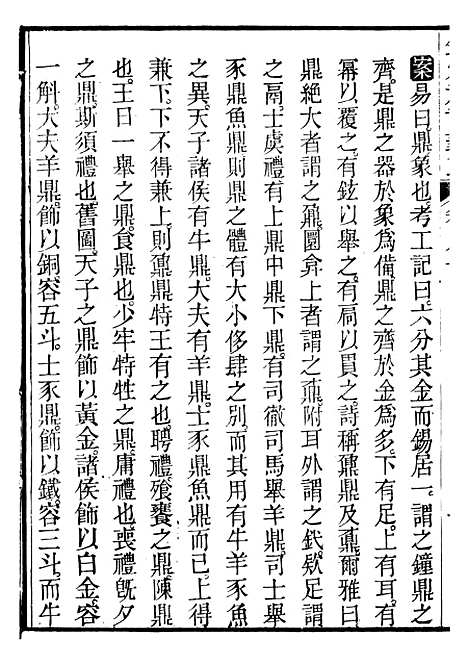 案易曰鼎象也考工記曰六分其金而錫居一謂之鐘鼎之
齊是鼎之器於象爲備鼎之齊於金爲多下有足上有耳有
冪以覆之有鉉以舉之有扃以貫之詩稱鼐鼎及鼒爾雅曰
鼎絶大者謂之鼐圜弇上者謂之鼒附耳外謂之釴款足謂
之鬲士虞禮有上鼎中鼎下鼎有司徹司馬舉羊鼎司士舉
豕鼎魚鼎則鼎之體有大小侈弇之别而其用有牛羊豕魚
之異天子諸侯有牛鼎大夫有羊鼎士豕鼎魚鼎而已上得
兼下下不得兼上則鼐鼎特王有之也聘禮飱饔之鼎陳鼎
也王日一舉之鼎食鼎也少牢特牲之鼎庸禮也喪禮旣夕
之鼎斯須禮也舊圖天子之鼎飾以黄金諸侯飾以白金容
一斛大夫羊鼎飾以銅容五斗士豕鼎飾以鐵容三斗而牛